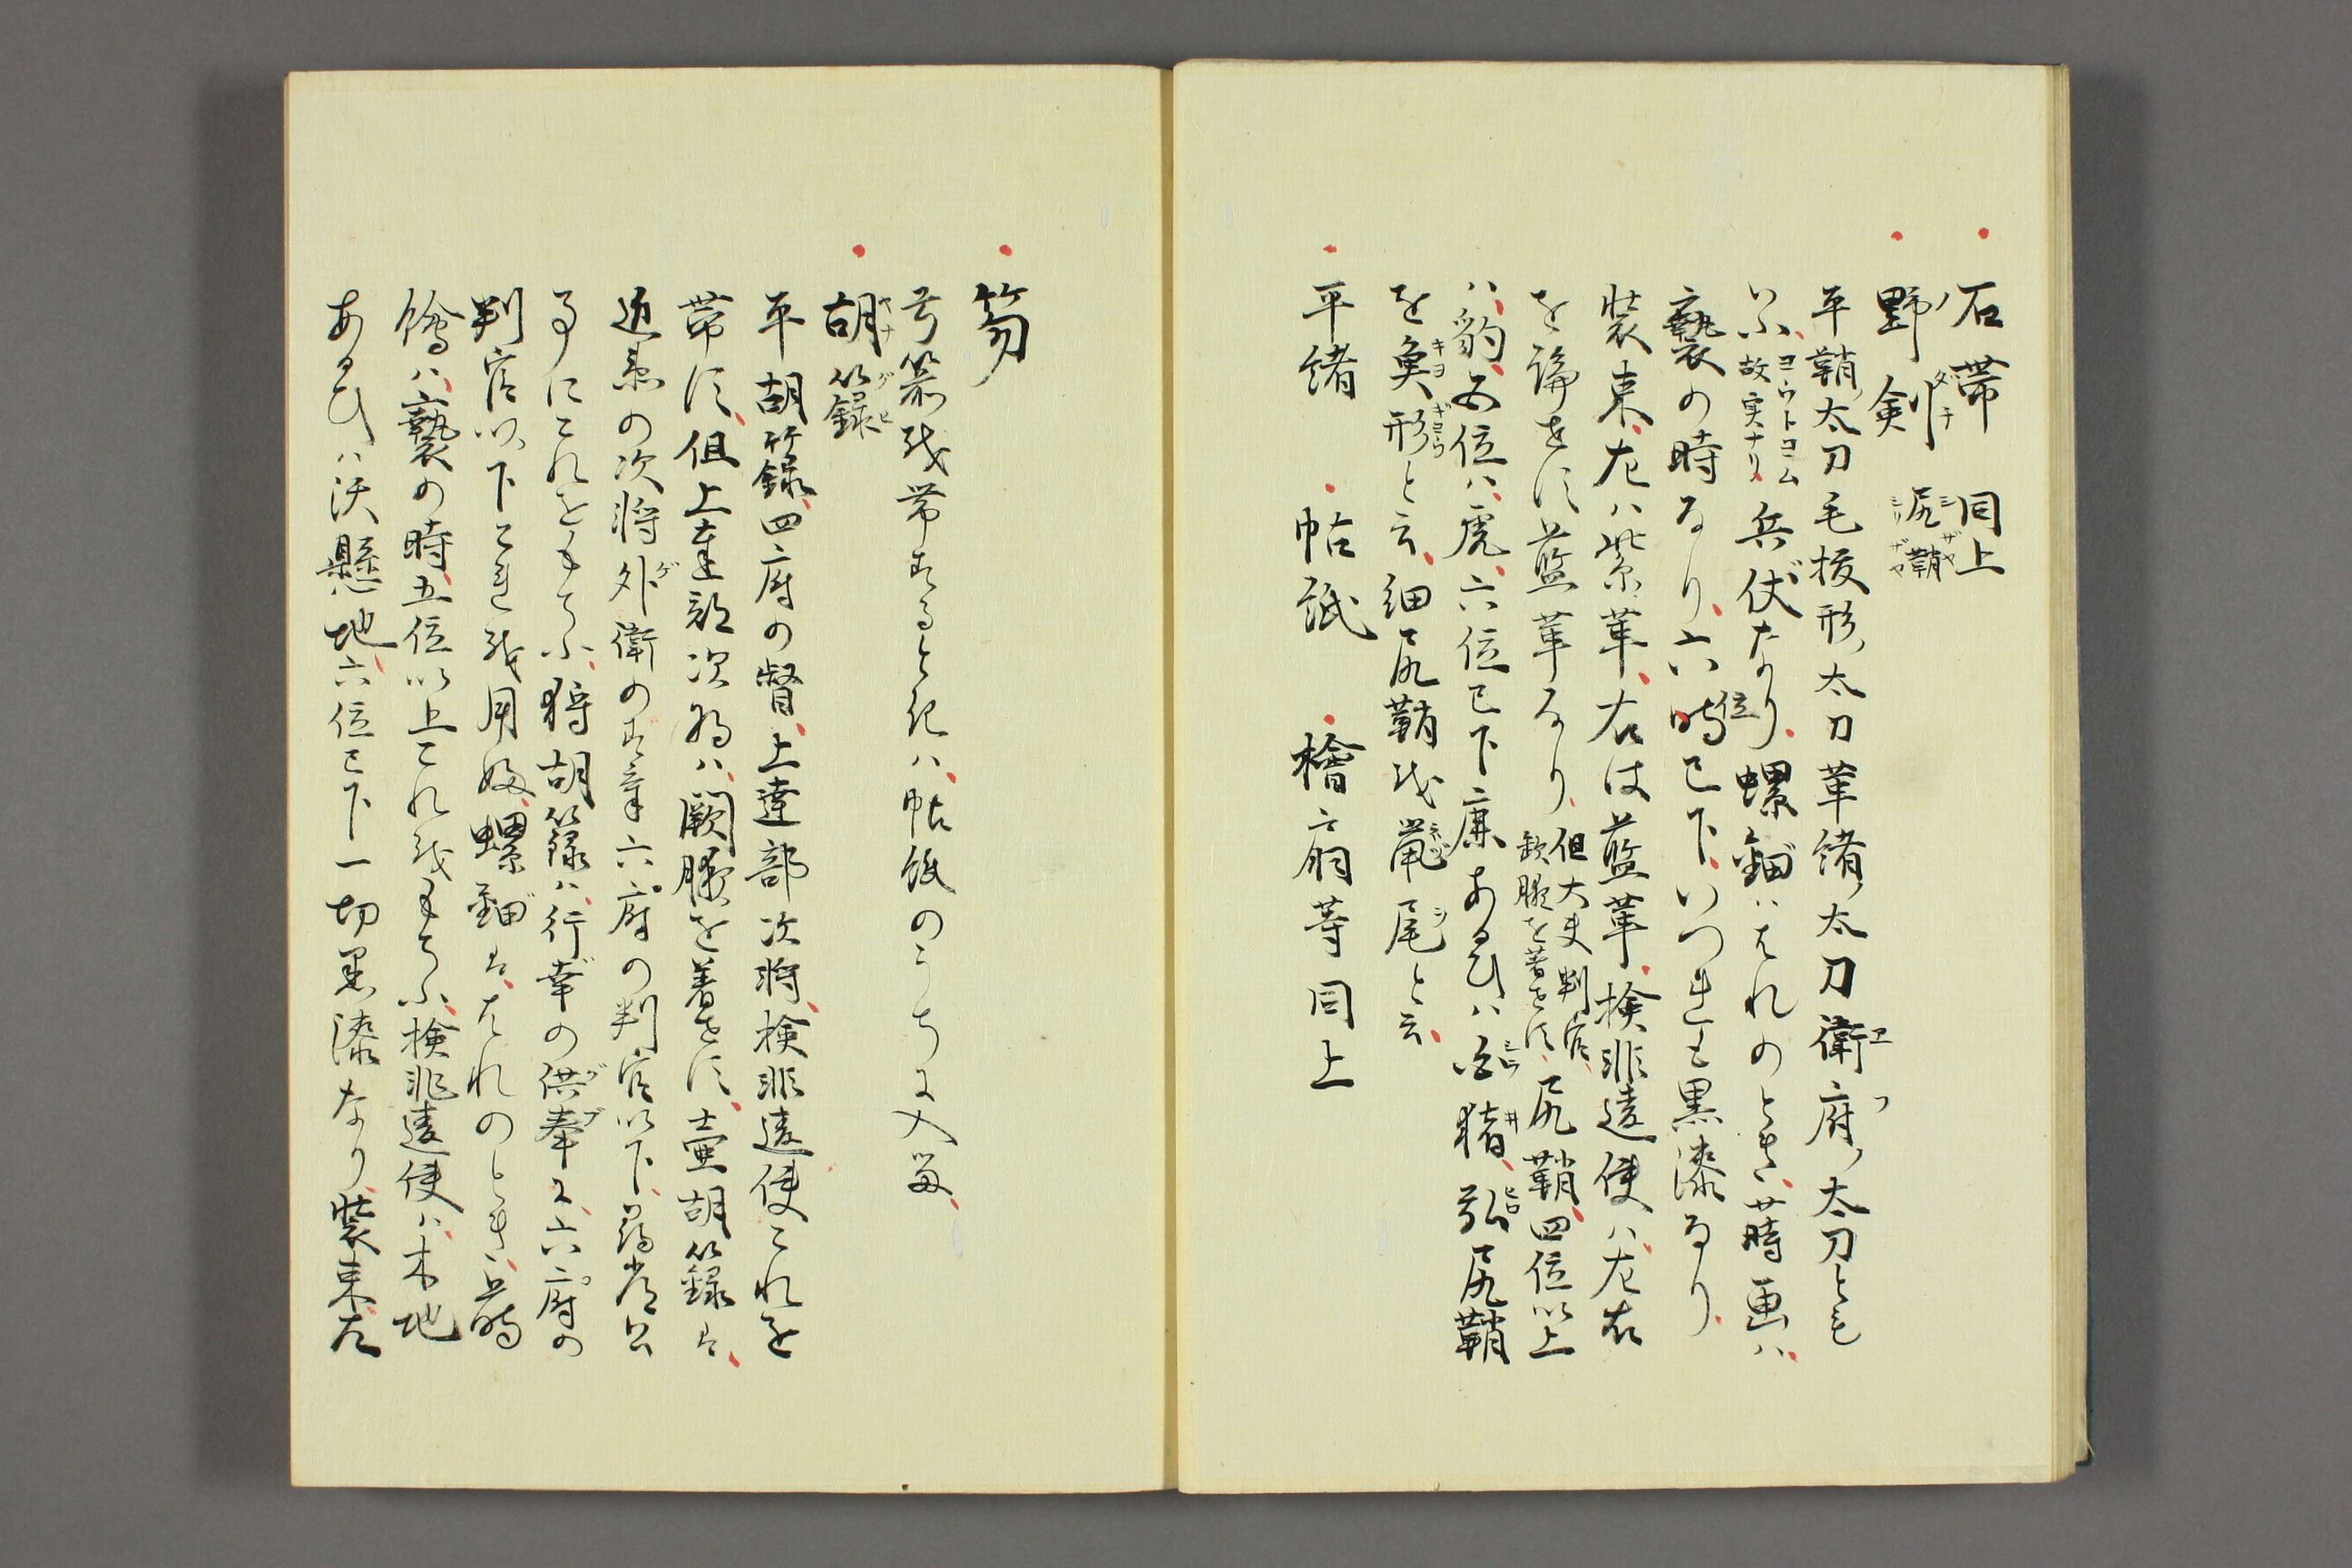 石帯 同上
野剣 尻鞘
平鞘太刀毛抜形太刀革緒太刀衛府太刀とも
いふ 故実ナリ ヨウトヨム 兵仗なり螺鈿ハはれのとき蒔画ハ
褻の時なり六位已下いつれも黒漆なり
装束左ハ紫革右は藍革検非違使ハ左右
を論せす藍革なり 但大夫判官 欽腋を着せす 尻鞘四位以上
ハ豹五位ハ虎六位已下鹿あるひハ 猪 尻鞘
を魚形と云細尻鞘を鼠尾と云
平緒 帖紙 檜扇等同上
笏
弓箭を帯するときハ帖紙のうちに入る
胡籙
平胡籙四府の督上達部次将検非違使これを
帯す但上達部次将ハ闕腋を着せす壷胡籙は
近衛の次将外衛のすけ六府の判官以下
事にこれをもちふ将胡籙ハ行幸の供奉に六府の
判官以下これを用ゆ螺鈿ははれのとき蒔
絵ハ褻の時五位以上これをもちふ検非違使ハ木地
あるひハ沃懸地六位已下一切黒漆なり装束左